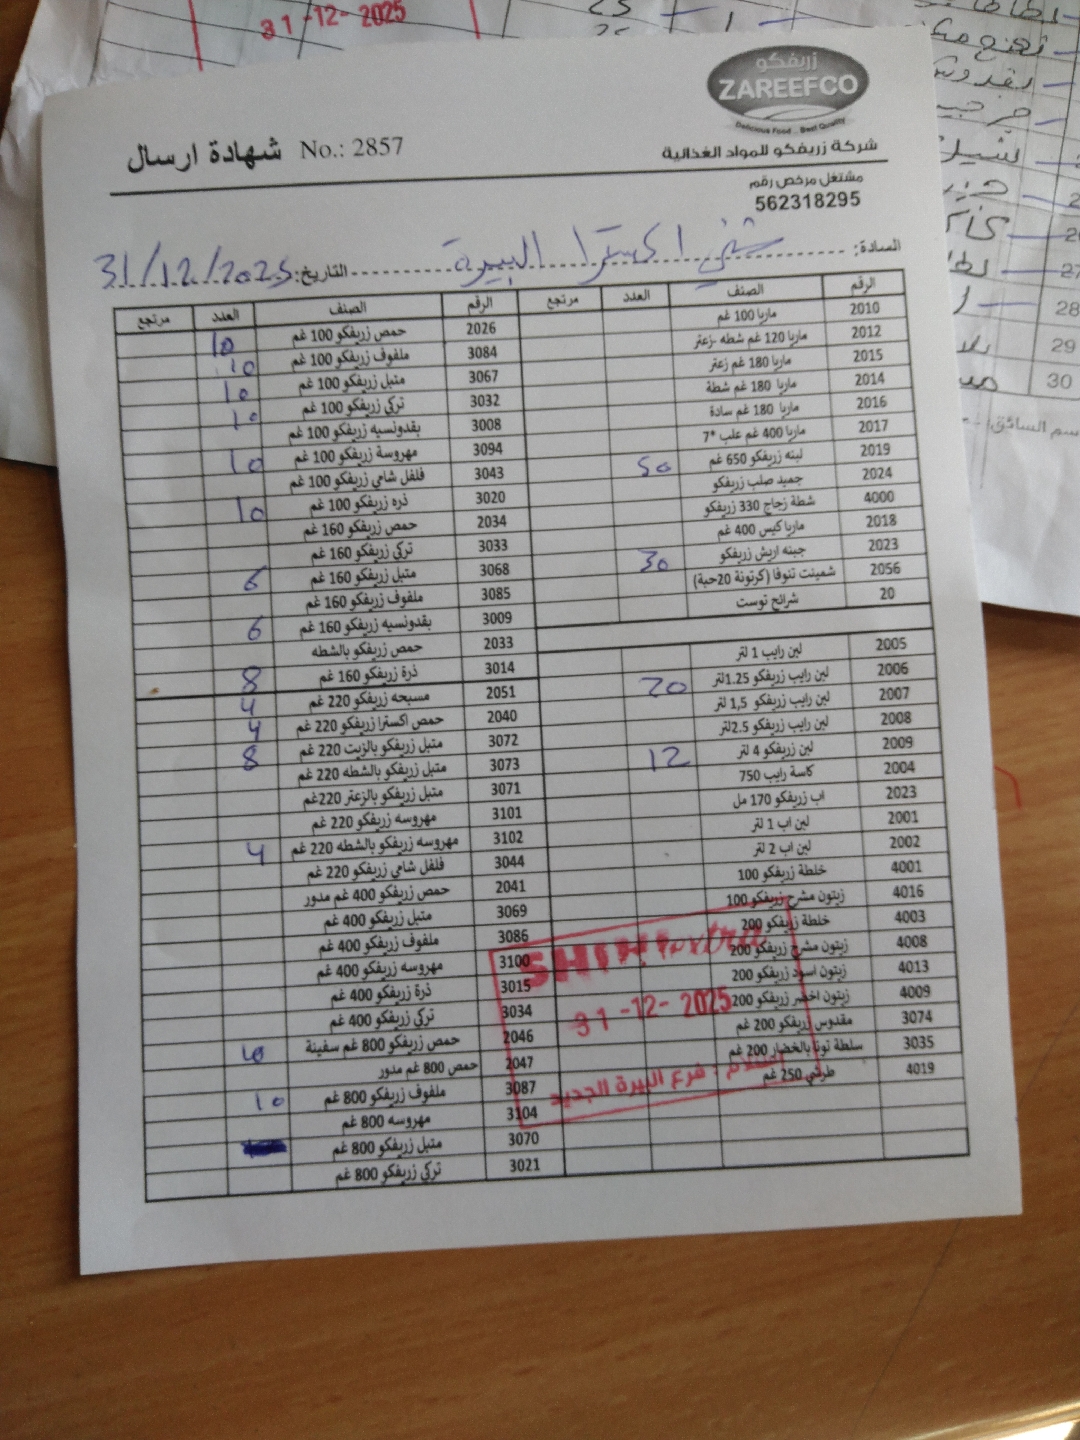 31-12-2025
زريفكو
ZAREEFCO
Delicious Food .. Best Quality
شركة زريفكو للمواد الغذائية
شهادة ارسال No.: 2857
مشتغل مرخص رقم
562318295
السادة: شني اكسترا البيرة التاريخ: 31/12/2025
الرقم الصنف العدد مرتجع
2010 ماريا 100 غم
2012 ماريا 120 غم شطه -زعتر
2015 ماريا 180 غم زعتر
2014 ماريا 180 غم شطة
2016 ماريا 180 غم سادة
2017 ماريا 400 غم علب *7
2019 لبنه زريفكو 650 غم 50
2024 جميد صلب زريفكو
4000 شطة زجاج 330 زريفكو
2018 ماريا كيس 400 غم
2023 جبنه اريش زريفكو 30
2056 شمينت تنوفا (كرتونة 20حبة)
20 شرائح توست
2005 لبن رايب 1 لتر
2006 لبن رايب زريفكو 1.25لتر 20
2007 لبن رايب زريفكو 1,5 لتر
2008 لبن رايب زريفكو 2.5لتر
2009 لبن زريفكو 4 لتر 12
2004 كاسة رايب 750
2023 اب زريفكو 170 مل
2001 لبن اب 1 لتر
2002 لبن اب 2 لتر
4001 خلطة زريفكو 100
4016 زيتون مشرح زريفكو 100
4003 خلطة زريفكو 200
4008 زيتون مشرح زريفكو 200
4013 زيتون اسود زريفكو 200
4009 زيتون اخضر زريفكو 200
3074 مقدوس زريفكو 200 غم
3035 سلطة تونا بالخضار 200 غم
4019 طرشي 250 غم
الرقم الصنف العدد مرتجع
2026 حمص زريفكو 100 غم 10
3084 ملفوف زريفكو 100 غم 10
3067 متبل زريفكو 100 غم 10
3032 تركي زريفكو 100 غم 10
3008 بقدونسيه زريفكو 100 غم
3094 مهروسة زريفكو 100 غم 10
3043 فلفل شامي زريفكو 100 غم
3020 ذره زريفكو 100 غم 10
2034 حمص زريفكو 160 غم
3033 تركي زريفكو 160 غم
3068 متبل زريفكو 160 غم 6
3085 ملفوف زريفكو 160 غم
3009 بقدونسيه زريفكو 160 غم 6
2033 حمص زريفكو بالشطه
3014 ذرة زريفكو 160 غم 8
2051 مسبحه زريفكو 220 غم 4
2040 حمص اكسترا زريفكو 220 غم 4
3072 متبل زريفكو بالزيت 220 غم 8
3073 متبل زريفكو بالشطه 220 غم
3071 متبل زريفكو بالزعتر 220غم
3101 مهروسه زريفكو 220 غم
3102 مهروسه زريفكو بالشطه 220 غم 4
3044 فلفل شامي زريفكو 220 غم
2041 حمص زريفكو 400 غم مدور
3069 متبل زريفكو 400 غم
3086 ملفوف زريفكو 400 غم
3100 مهروسه زريفكو 400 غم
3015 ذرة زريفكو 400 غم
3034 تركي زريفكو 400 غم
2046 حمص زريفكو 800 غم سفينة 10
2047 حمص 800 غم مدور
3087 ملفوف زريفكو 800 غم 10
3104 مهروسه 800 غم
3070 متبل زريفكو 800 غم
3021 تركي زريفكو 800 غم
SHINI extra
31-12-2025
استلام : فرع البيرة الجديد
28
29
30
اسم السائق